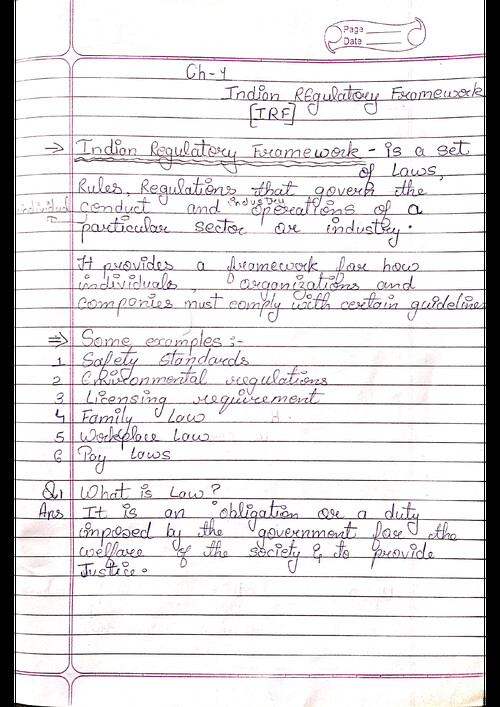 Page
Date
Ch-1
Indian Regulatory Framework
[IRF]
⇒ Indian Regulatory Framework - is a set
of Laws,
Rules, Regulations that govern the
individual industry
conduct and operations of a
particular sector or industry.
It provides a framework for how
individuals, organizations and
companies must comply with certain guidelines
⇒ Some examples :-
1 Safety Standards
2 Environmental regulations
3 Licensing requirement
4 Family Law
5 Workplace Law
6 Pay Laws
Q1 What is Law?
Ans It is an obligation or a duty
imposed by the government for the
welfare of the society & to provide
Justice.